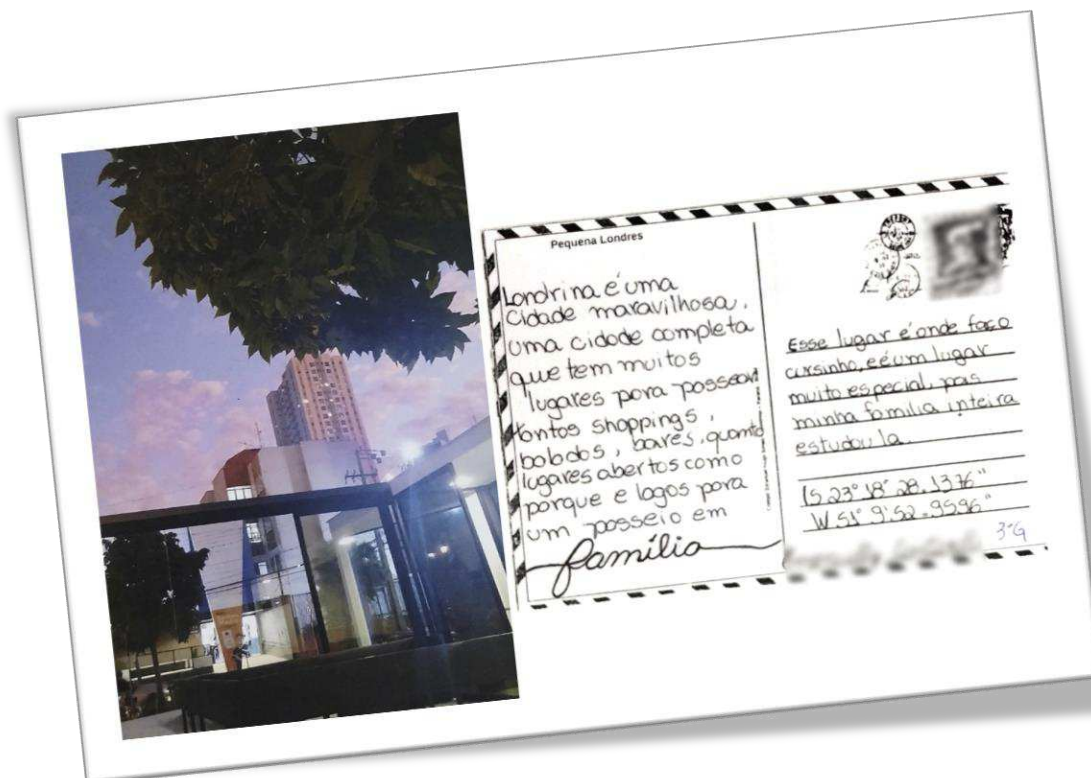 Pequena Londres
Londrina é uma
cidade maravilhosa,
uma cidade completa
que tem muitos
lugares para passear
tantos shoppings,
baladas, bares, quanto
lugares abertos como
parque e lagos para
um passeio em
família
Esse lugar é onde faço
cursinho, e é um lugar
muito especial, pois
minha família inteira
estudou la.
(S 23° 18' 28.1376"
W 51° 9' 52.9596"
3°G